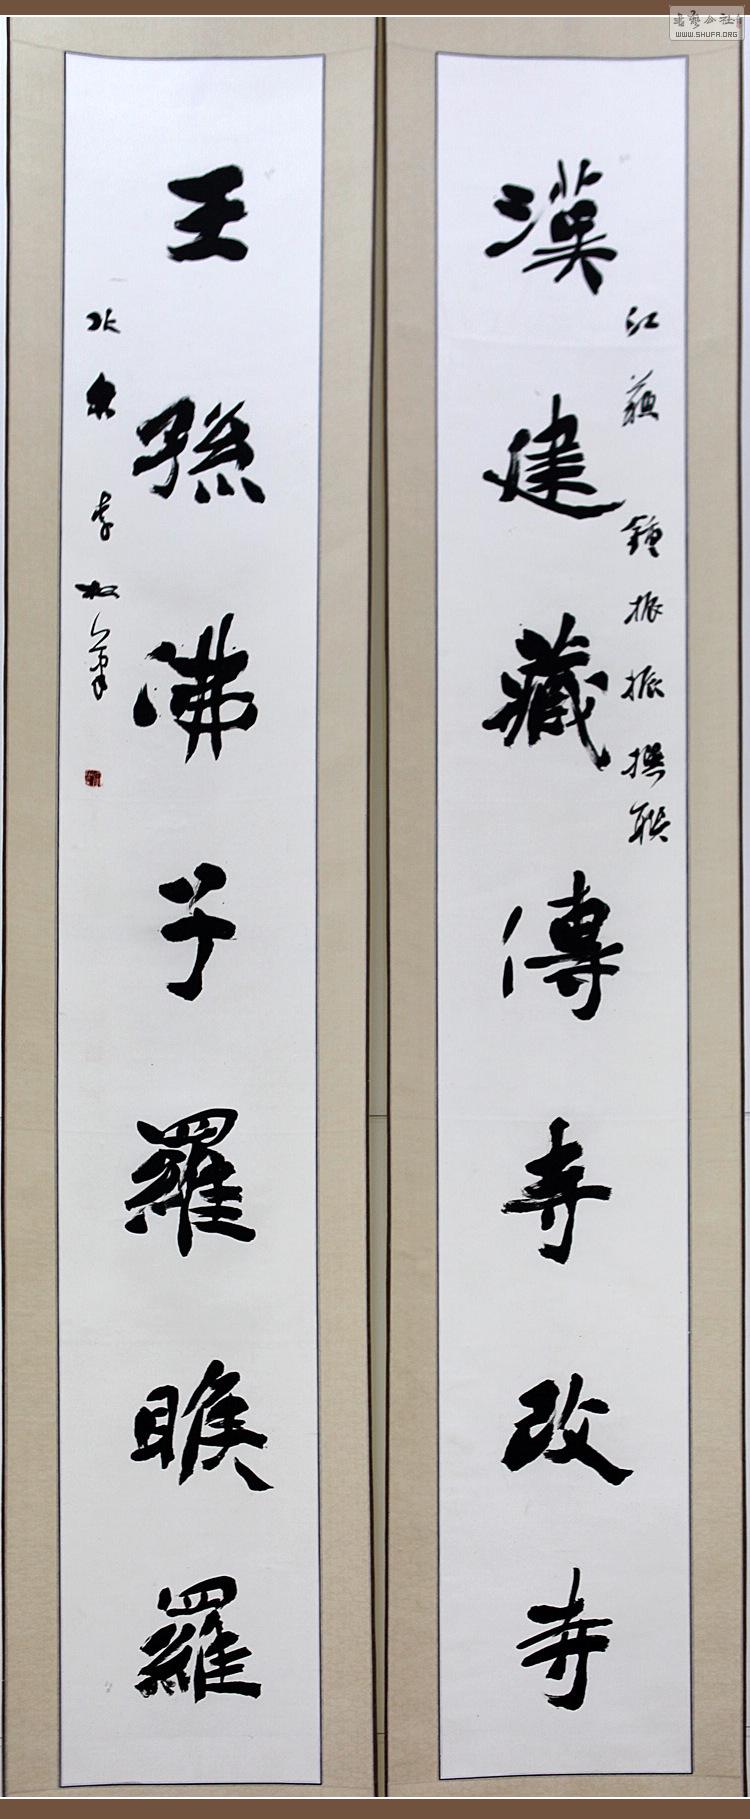 書藝公社
WWW.SHUFA.ORG
漢建藏傳寺改寺
江蘇 鍾振振撰聯
王孫佛子羅睺羅
北京 李松筆